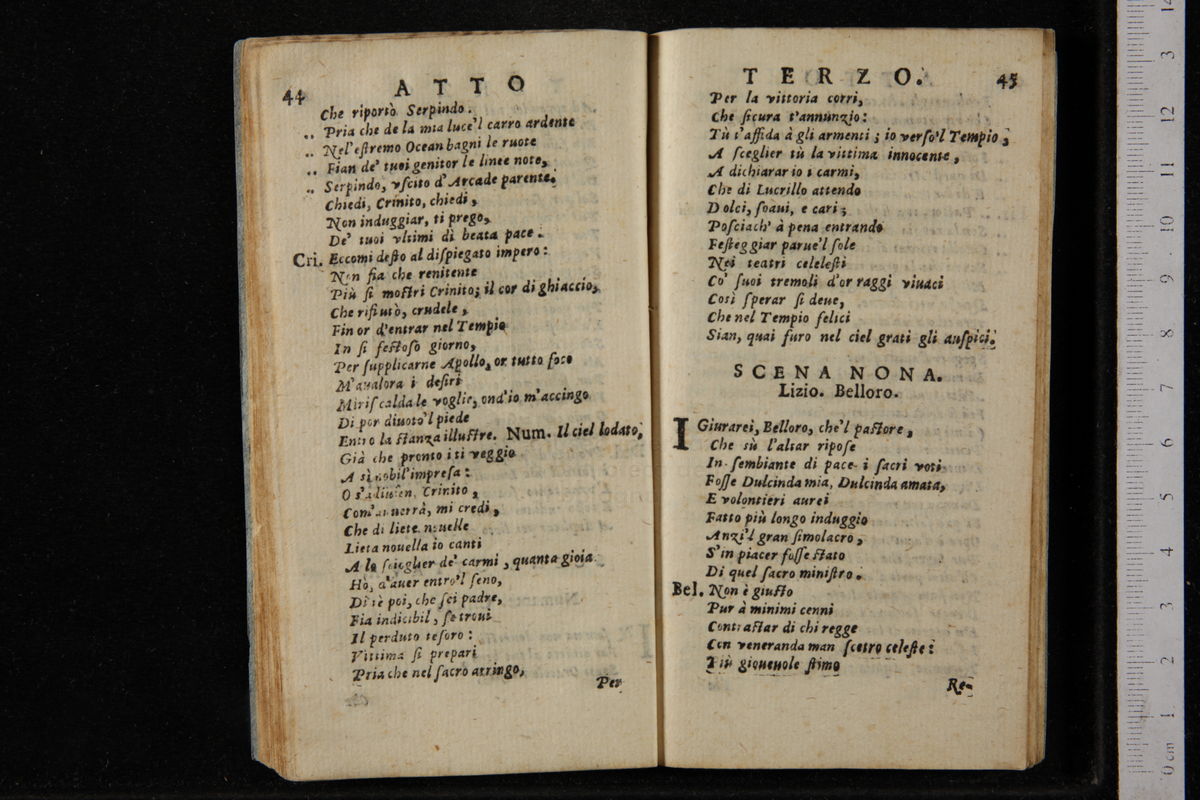 44 ATTO
Che riportò Serpindo.
„ Pria che de la mia luce'l carro ardente
„ Nel'eſtremo Ocean bagni le ruote
„ Fian de' tuoi genitor le linee note,
„ Serpindo, vſcito d'Arcade parente.
Chiedi, Crinito, chiedi,
Non induggiar, ti prego,
De' tuoi vltimi dì beata pace.
Cri. Eccomi deſto al diſpiegato impero:
Non fia che renitente
Più ſi moſtri Crinito; il cor di ghiaccio,
Che rifiutò, crudele,
Fin or d'entrar nel Tempio
In ſi feſtoſo giorno,
Per ſupplicarne Apollo, or tutto foco
M'aualora i deſiri
Miriſcalda le voglie, ond'io m'accingo
Di por diuoto'l piede
Entro la ſtanza illuſtre. Num. Il ciel lodato,
Già che pronto iti veggio
A sì nobil'impreſa:
O Crinito,
mi credi,
Che di liete nouelle
Lieta nouella io canti
A lo ſcioglier de' carmi, quanta gioia
Hò, d'auer entro'l ſeno,
Di tè poi, che ſei padre,
Fia indicibil, ſe troui
Il perduto teſoro:
Vittima ſi prepari
Pria che nel ſacro arringo,
Per
TERZO. 45
Per la vittoria corri,
Che ſicura t'annunzio:
Tù t'affida à gli armenti; io verſo'l Tempio;
A ſceglier tù la vittima innocente,
A dichiarar io i carmi,
Che di Lucrillo attendo
Dolci, ſoaui, e cari;
Poſciach' à pena entrando
Feſteggiar parue'l ſole
Nei teatri celeleſti
Co' ſuoi tremoli d'or raggi viuaci
Così ſperar ſi deue,
Che nel Tempio felici
Sian, quai furo nel ciel grati gli auſpici.
SCENA NONA.
Lizio. Belloro.
I Giurarei, Belloro, che'l paſtore,
Che sù l'altar ripoſe
In ſembiante di pace i ſacri voti
Foſſe Dulcinda mia, Dulcinda amata,
E volontieri aurei
Fatto più longo induggio
Anzi'l gran ſimolacro,
S'in piacer foſſe ſtato
Di quel ſacro miniſtro.
Bel. Non è giuſto
Pur à minimi cenni
Contraſtar di chi regge
Con veneranda man ſcetro celeſte:
Più gioueuole ſtimo
Re-